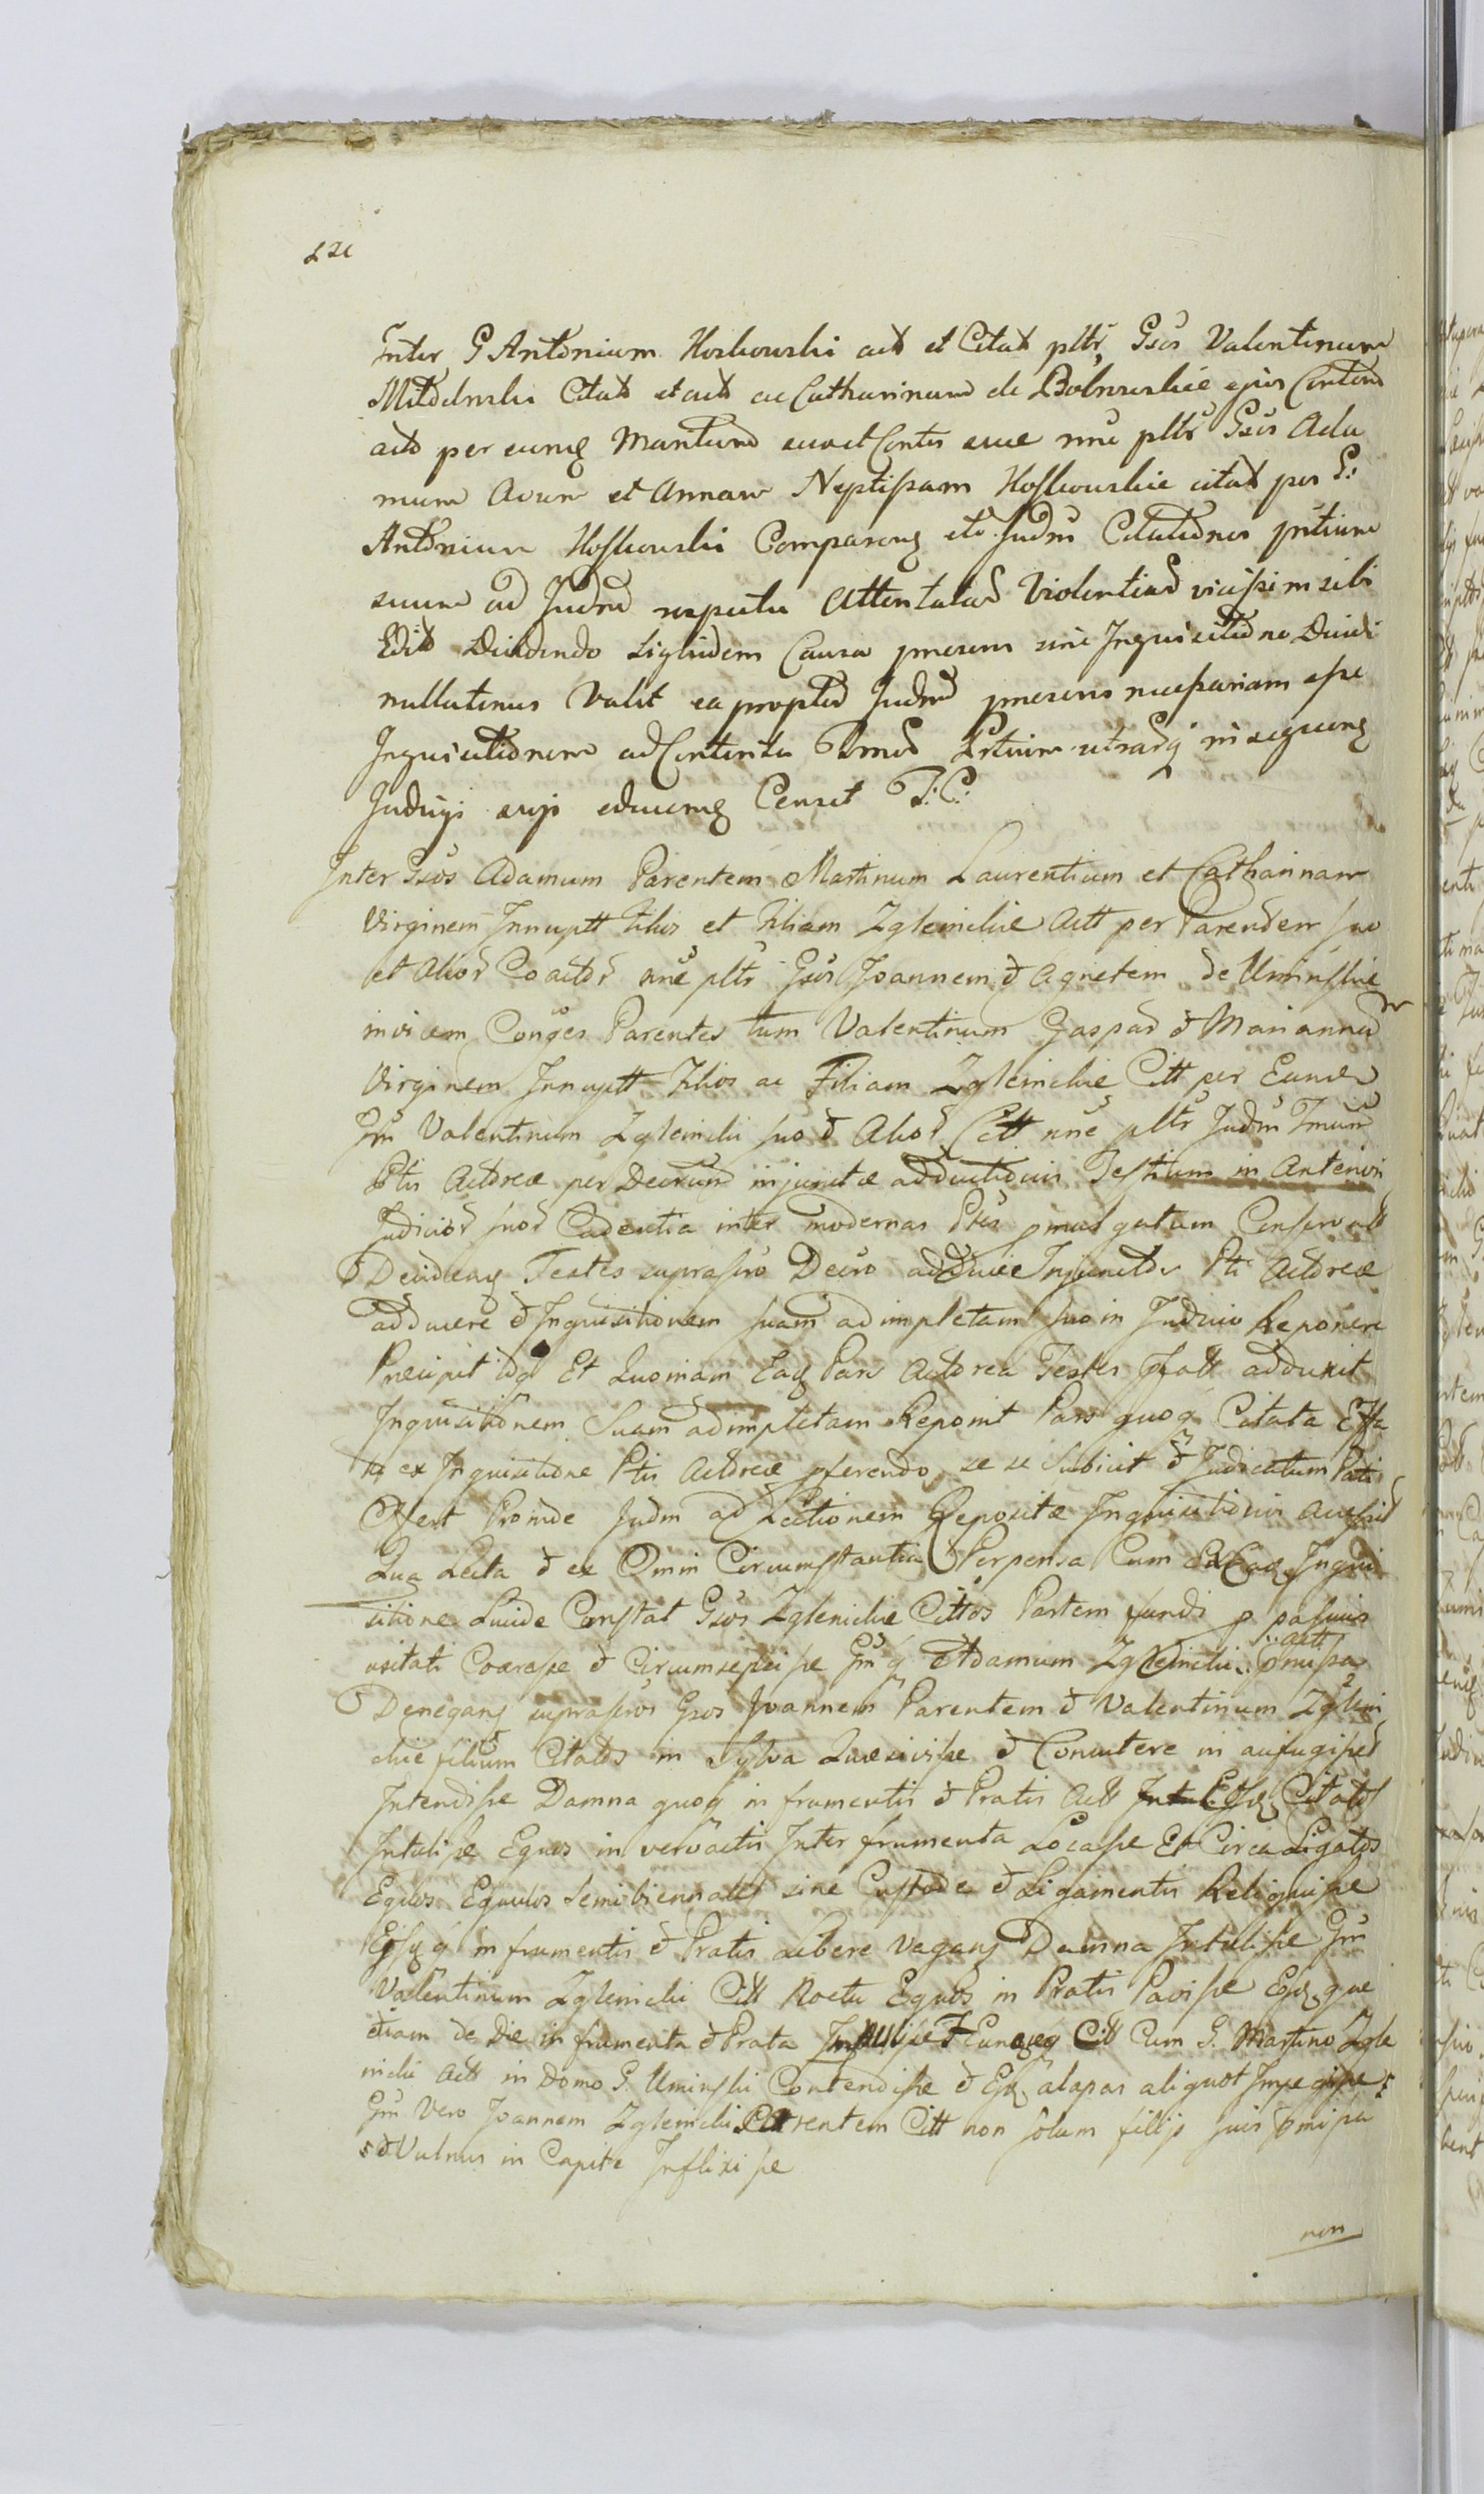 Inter G Antonium Hoskowski act et Citat pltr Gsos Valentinum
Citat et act ac Catharinam de ejus
act per eunq Maritum suae nne pltr Gsos Ada
mum Avum et Annam Neptissam Hoskowskie citat per G:
Antonium Hoskowski Comparenq etc. Judm Citationes
suum ad Judm respectu Attentatar Violentiar vicissim sibi
Edit Decidendo Siquidem Causa praesens sine Inquisitione Decidi
nullatenus Valet ea propter Judm praesens necessariam esse
Inquisitionem ad Contenta utrasq in sequenq
Judiijs eorjs educenq Censet T: C:
Inter Gsos Adamum Parentem Martinum Laurentium et Catharinam
Virginem Innuptt Filios et Filiam Zglenickie Actt per Parentem suo
et Alior Coactor nne pltr Gsos Joannem & Agnetem de Uminskie
invicem Conges Parentes tum Valentinum Gaspar & Mariannam
Virginem Innuptt Filios ac Filiam Zglenickie Citt per Eund
Gm Valentinum Zglenicki suo & Alior Citt nne pltr Judm
Ptis Actoreae per Decrum injunctae adductionis Testium in Anterior
Judicior suor Cadentia inter modernas Ptes pmulgatum Conservatt
& Decidenq Testes suprascro Decro adducere Injunctos Pti Actoreae
adducere & Inquisitionem suam adimpletam suo in Judicio Reponere
Praecipit idq Et Quoniam Eaq Pars Actorea Testes adduxit
Inquisitionem Suam adimpletam Reponit Pars quoq Citata Effa
ta ex Inquisitione Ptis Actoreae pferendo se se Subicit & Judicatum Pati
Offert Proinde Judm ad Lectionem Repositae Inquisitionis accessit
Qua Lecta & ex Omni Circumstantia Perpensa Cum Ex Eaq Inqui
sitione Lucide Constat Gsos Zglenickie Cittos Partem fundi p pascuis
usitati Coarasse & Circumsepsisse Gmq Adamum Zglenicki actt pmissa
Deneganq suprascros Gsos Joannem Parentem & Valentinum Zgleni
ckie filium Citatos in Sylva Quaesivisse & Concutere ni aufugisset
Intendisse Damna quoq in frumentis & Pratis Actt Citatos
Intulisse Equos in vervactis Inter frumenta Locasse Et Circa Ligatos
Equos Equulos Semibiennales sine Custode & Ligamentis Reliquisse
Eosq q in frumentis & Pratis Libere vaganq Damna Intulisse Gm
Valentinum Zglenicki Citt Noctu Equos in Pratis Pavisse Eosq que
etiam de Die in frumenta & Prata Impulisse Eunq Citt Cum G. Martino Zgle
nicki Actt in Domo G. Uminski Contendisse & Ei alapas aliquot Impegisse
Gm Vero Joannem Zglenicki Parentem Citt non solum filijs suis pmissa
& Vulnus in Capite Inflixisse
non